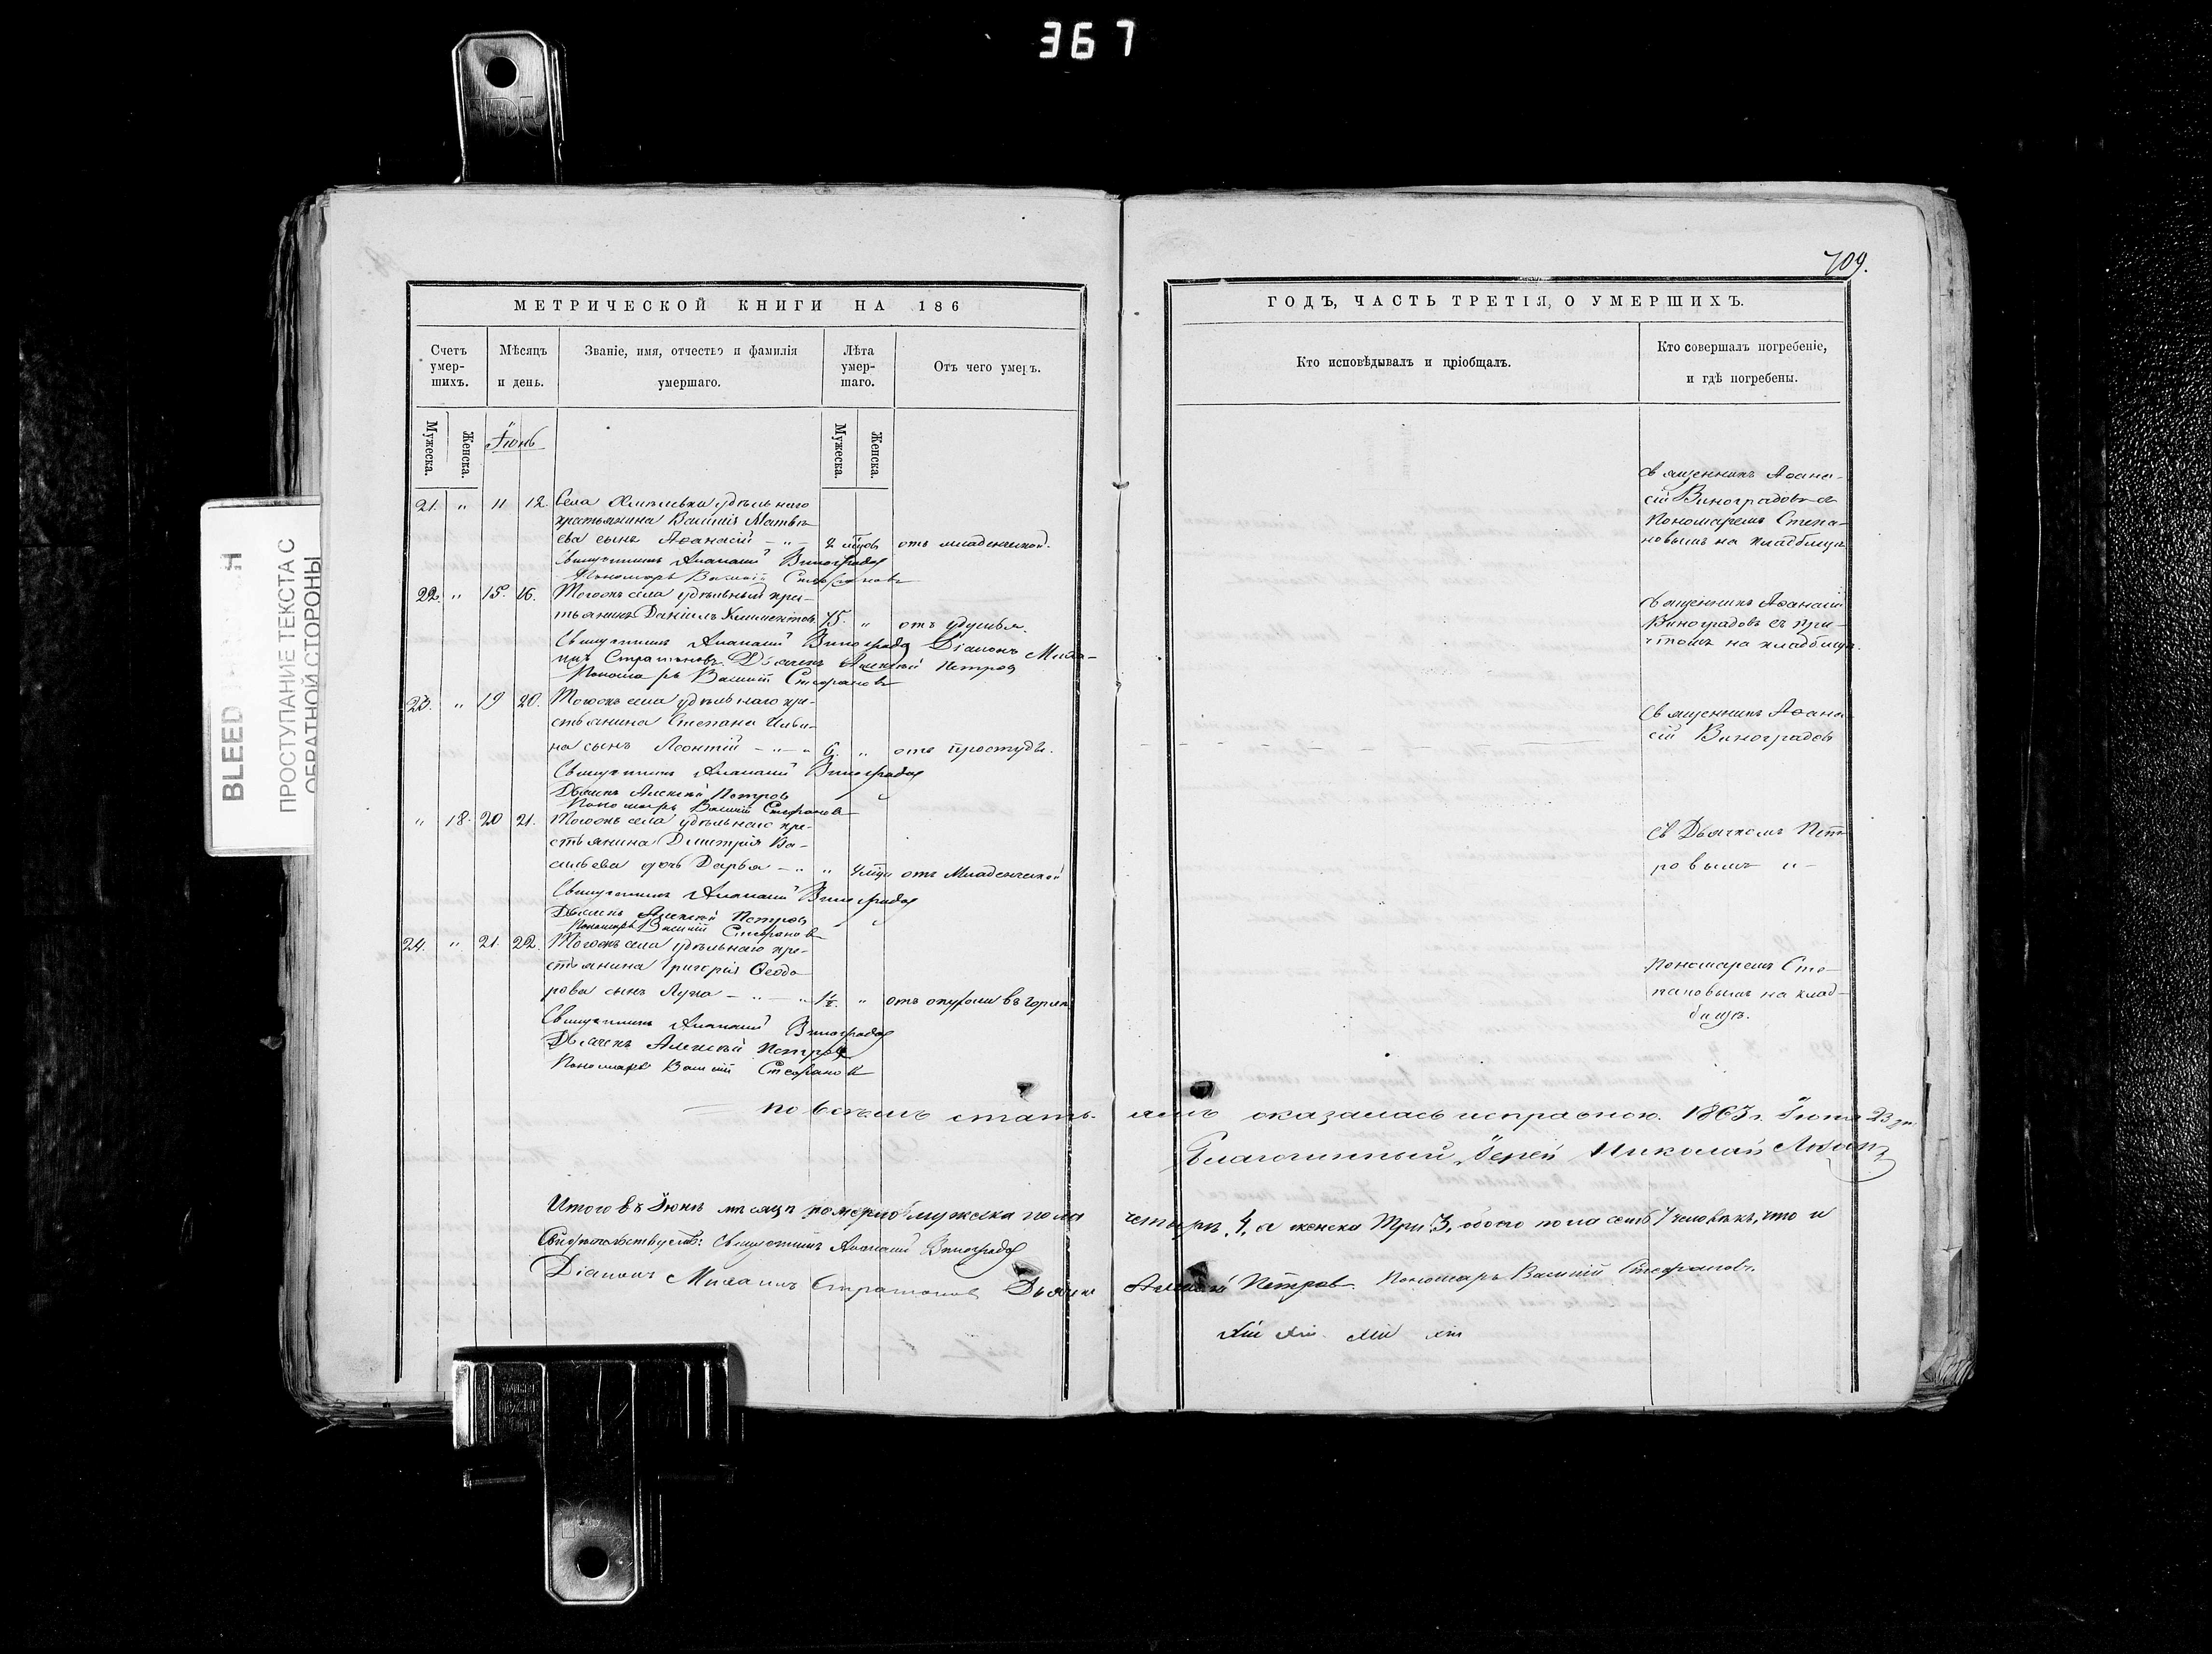 367
709.
BLEED
ПРОСТУПАНИЕ ТЕКСТА С
ОБРАТНОЙ СТОРОНЫ
МЕТРИЧЕСКОЙ КНИГИ НА 186
Счетъ умер-шихъ.
Мѣсяцъ и день.
Званіе, имя, отчество и фамилія умершаго.
Лѣта умер-шаго.
Отъ чего умеръ.
Мужеска.
Женска.
Іюнь
Мужеска.
Женска.
21. " 11 12. Села удѣльнаго
крестьянина Василія Матвѣ-
ева сынъ Аѳанасій - " - 2 мѣсцовъ отъ младенческой.
Священникъ Аѳанасій Виноградовъ
Пономарь Василій Стефановъ
22. " 15. 16. Тогожъ села удѣльный кре-
стьянинъ Даніилъ Климентовъ 75. " отъ удушья.
Священникъ Аѳанасій Виноградовъ Діаконъ Миха-
илъ Стратоновъ Дьячекъ Алексѣй Петровъ
Пономарь Василій Стефановъ
23. " 19 20. Тогожъ села удѣльнаго кре-
стьянина Степана Ильи-
на сынъ Леонтій - " - " 6. " отъ простуды.
Священникъ Аѳанасій Виноградовъ
Дьячекъ Алексѣй Петровъ
Пономарь Василій Стефановъ
" 18. 20 21. Тогожъ села удѣльнаго кре-
стьянина Димитрія Ва-
сильева дочь Дарья - " " 4 мѣсц отъ младенческой
Священникъ Аѳанасій Виноградовъ
Дьячекъ Алексѣй Петровъ
Пономарь Василій Стефановъ
24. " 21. 22. Тогожъ села удѣльнаго кре-
стьянина Григорія Ѳеодо-
рова сынъ Лука - " - " 1½. " отъ опухоли въ горлѣ
Священникъ Аѳанасій Виноградовъ
Дьячекъ Алексѣй Петровъ
Пономарь Василій Стефановъ
ГОДЪ, ЧАСТЬ ТРЕТІЯ, О УМЕРШИХЪ.
Кто исповѣдывалъ и пріобщалъ.
Кто совершалъ погребеніе,
и гдѣ погребены.
Священникъ Аѳана-
сій Виноградовъ съ
Пономаремъ Стефа-
новымъ на кладбищѣ
Священникъ Аѳанасій
Виноградовъ съ при-
чтомъ на кладбищѣ.
Священникъ Аѳана
сій Виноградовъ
съ Дьячкомъ Пет-
ровымъ " -
Пономаремъ Сте-
фановымъ на клад-
бищѣ.
по всѣмъ стать-ямъ оказалась исправною. 1863 г. Іюня 23 дн.
Благочинный, Іерей Николай
Итого въ Іюнѣ мѣсяцѣ померло мужеска пола четыре, 4, а женска три 3, обоего пола семь 7 человѣкъ, что и
Свидѣтельствуемъ: Священникъ Аѳанасій Виноградовъ
Діаконъ Михаилъ Стратоновъ Дьячекъ Алексѣй Петровъ. Пономарь Василій Стефановъ.